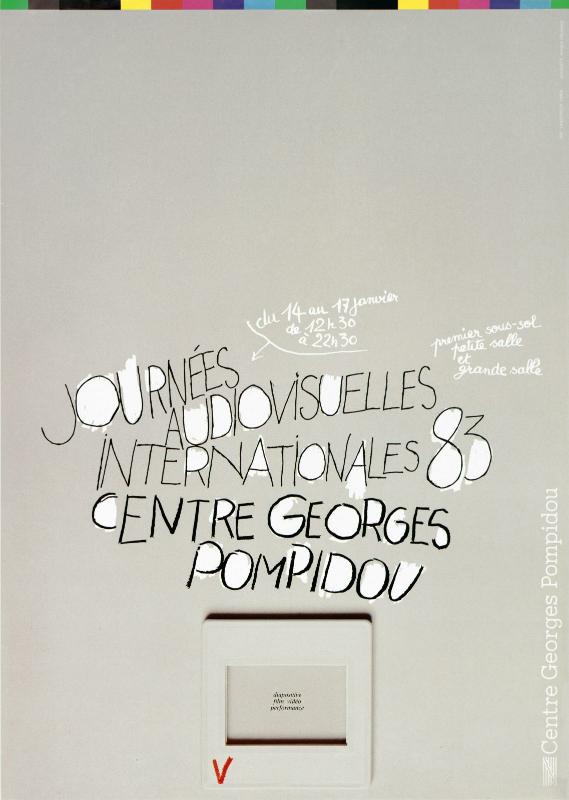 du 14 au 17 janvier
de 12h30
à 22h30
premier sous-sol
petite salle
et
grande salle
JOURNÉES
AUDIOVISUELLES
INTERNATIONALES 83
CENTRE GEORGES
POMPIDOU
diapositive
film vidéo
performance
V
Centre Georges Pompidou